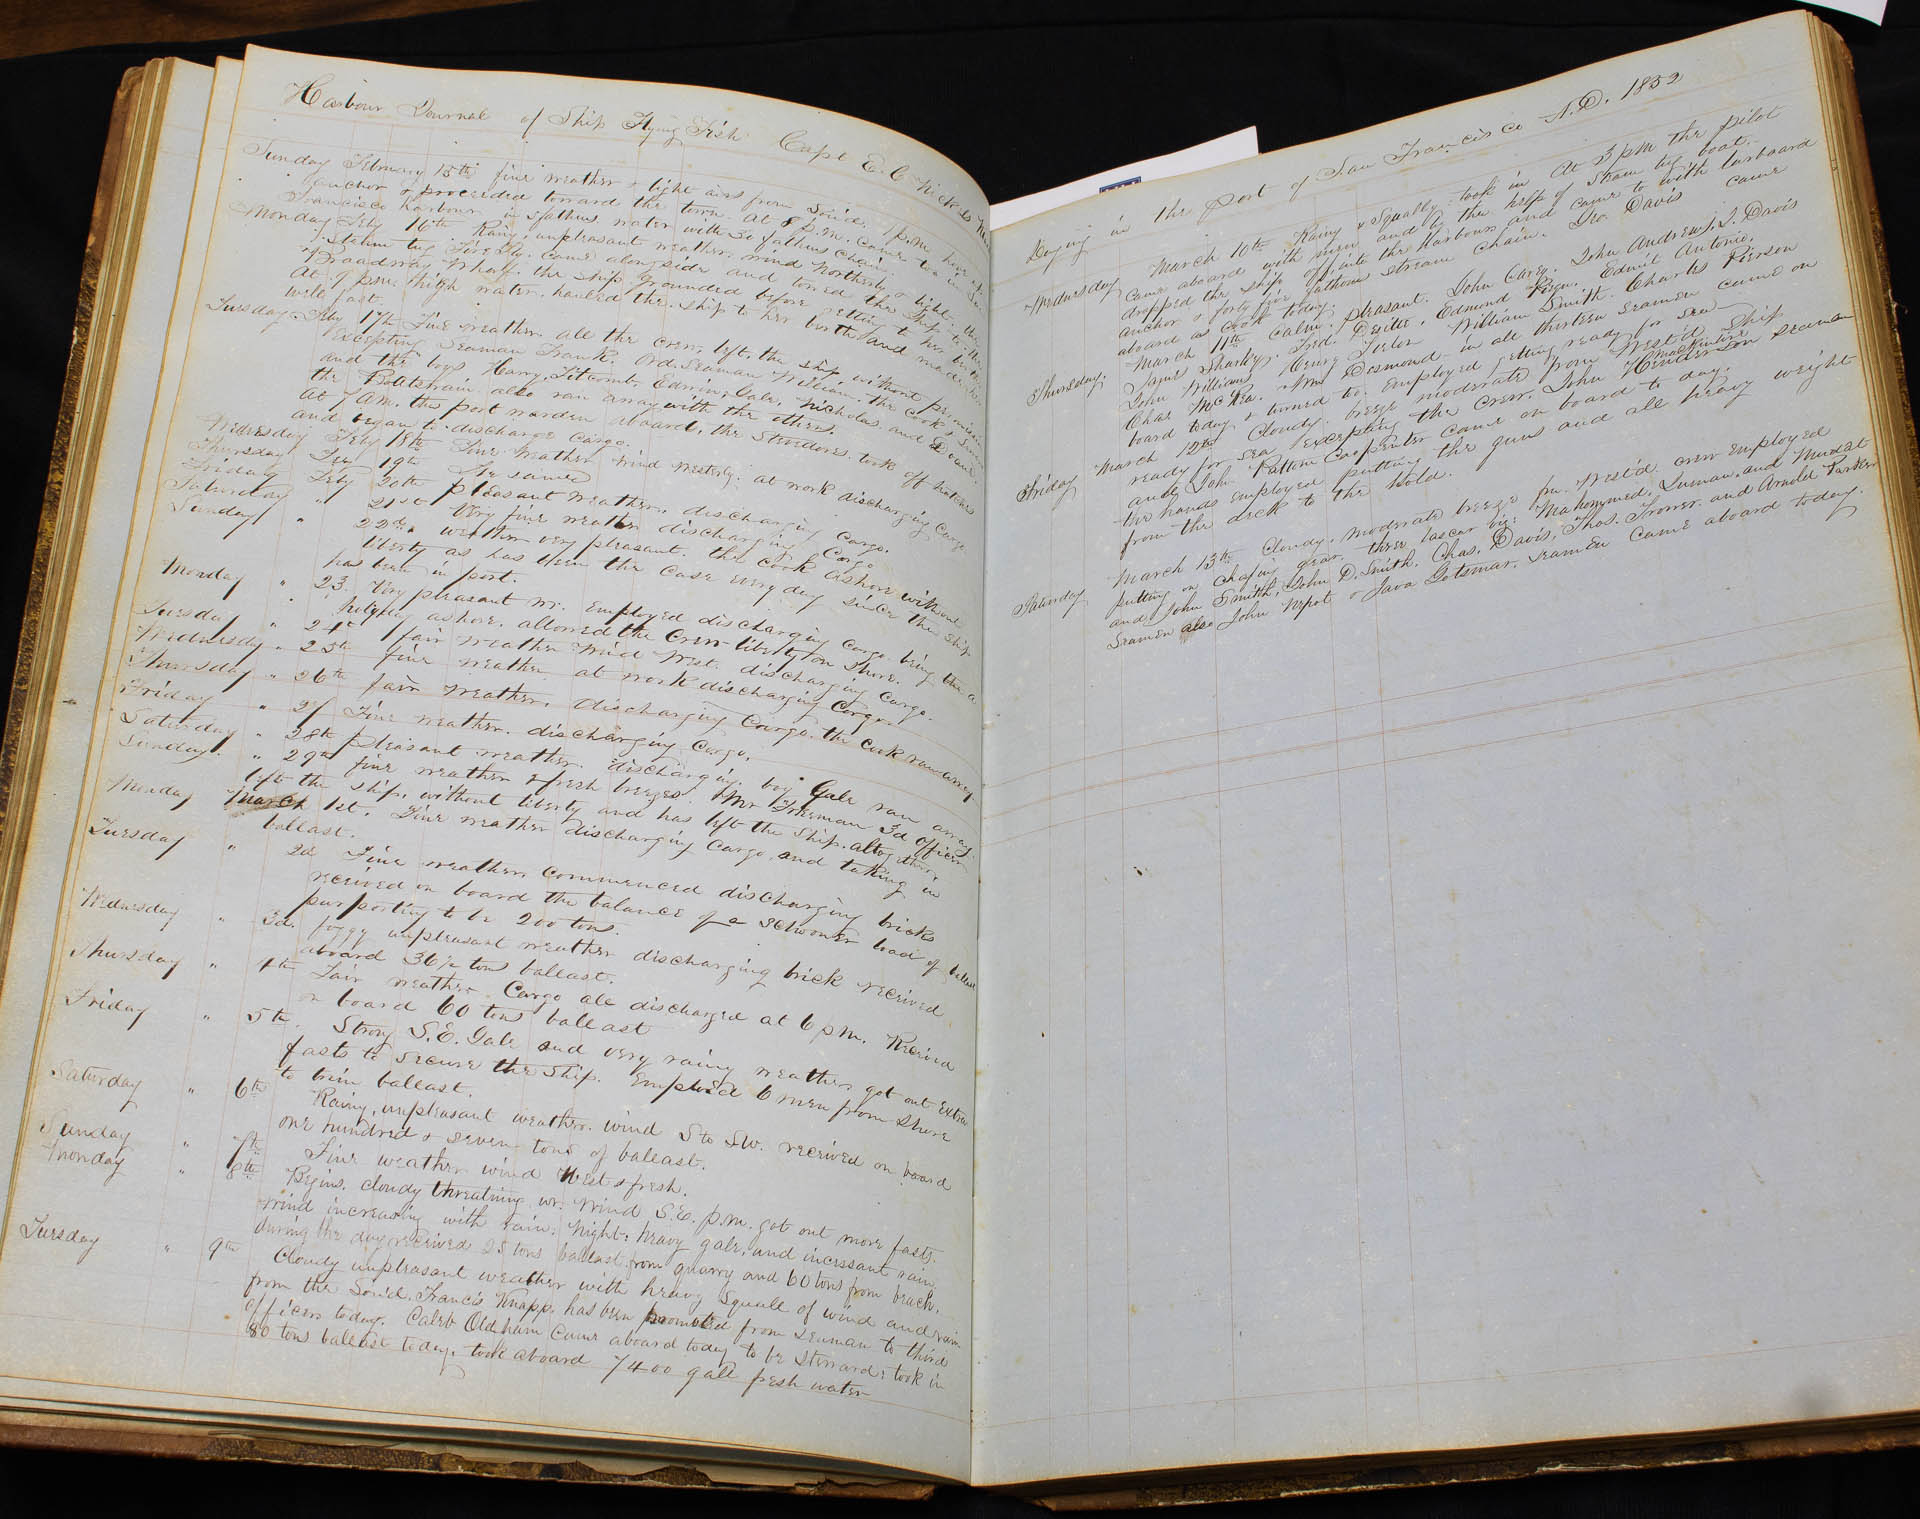 Harbour Journal of Ship Flying Fish Capt E. C. Nickels
Sunday February 15th fine weather & light airs from So'd. 1 p.m. hove up
anchor & proceeded toward the town. At 8 p.m. came too in San
Francisco harbour in 5 fathms water with 30 fathms chain.
Monday Feby 16th Rainy unpleasant weather, wind Northerly & light. the
Steam tug Fire Fly came alongside and towed the Ship to the
Broadway Wharf. the ship grounded before getting to her birth
At 9 p.m. high water. hauled the ship to her birth and made her
well fast.
Tuesday Feby 17th Fine weather. all the crew left the ship without permission
Excepting Seaman Frank. Ord. Seaman William. the Cook,
and the boys Harry, Titcomb, Edwin, Gale, Nicholas and
the Boatswain also ran away with the others.
At 7 A.M. the port warden aboard, the Stevedores took off hatches
and began to discharge cargo.
Wednesday Feby 18th Fine Weather Wind Westerly: at work discharging Cargo
Thursday Feb 19th the same
Friday Feby 20th pleasant weather, discharging Cargo.
Saturday " 21st Very fine weather discharging Cargo
Sunday " 22d " weather very pleasant. the cook ashore without
liberty as has been the case every day since the ship
has been in port.
Monday " 23. Very pleasant wr. Employed discharging Cargo being the a
holyday ashore, allowed the Crew liberty on Shore.
Tuesday " 24th fair weather Wind West. discharging Cargo.
Wednesday " 25th fine weather at work discharging Cargo.
Thursday " 26th fair weather. discharging Cargo. the Cook ran away
Friday " 27 Fine weather. discharging Cargo.
Saturday " 28th pleasant weather discharging. boy Gale ran away.
Sunday. " 29th fine weather & fresh breezes. Mr Freeman 3d Officer
left the ship, without liberty and has left the Ship. altogether.
Monday March 1st. Fine weather discharging Cargo and taking in
ballast.
Tuesday " 2d Fine weather. Commenced discharging bricks
received on board the balance of a schooner load of ballast
purporting to be 200 tons.
Wednesday " 3d. foggy unpleasant weather discharging brick received
aboard 36½ tons ballast.
Thursday " 4th Fair weather Cargo all discharged at 6 p.m. Received
on board 60 tons ballast
Friday " 5th. Strong S.E. Gale and very rainy weather got out extra
fasts to secure the ship. Employed 6 men from Shore
to trim ballast.
Saturday " 6th Rainy, unpleasant weather. wind S to SW. received on board
one hundred & seven tons of ballast.
Sunday " 7th Fine weather wind West & fresh.
Monday " 8th Begins. cloudy threatning wr. Wind S.E. p.m. got out more fasts.
Wind increasing with rain. Night: heavy gale, and incessant rain
during the day received 25 tons ballast from quarry and 60 tons from beach.
Tuesday " 9th Cloudy unpleasant weather with heavy Squalls of wind and rain
from the So'd. Francis Knapp. has been promoted from Seaman to third
officer today. Caleb Oldham came aboard today to be Steward: took in
80 tons ballast today. took aboard 7400 galls fresh water
Laying in the Port of San Francisco A.D. 1852
Wednesday March 10th Rainy & Squally: took in At 3 p.m the pilot
Came aboard with men and by the help of Steam tug boat.
dropped the ship off into the Harbour and came to with larboard
anchor & forty five fathoms stream chain. Geo Davis came
aboard as cook today.
Thursday. March 11th Calm. pleasant. John Carey. John Andrew, J. J. Davis
James Sharky. Fred. Deitte. Edmund Edwit Antonio.
John Williams Henry William Smith. Charles Pierson
Chas McRea. Wm Desmond in all thirteen Seamen came on
board today & turned to. Employed getting ready for sea
Friday March 12th Cloudy. breeze moderate from West'd Ship
ready for sea Excepting the crew. John MacKintire Henderson seaman
and John Patten Carpenter came on board to day.
the hands employed putting the guns and all heavy weight
from the deck to the Hold.
Saturday March 13th Cloudy, moderate breeze fm. West'd. crew employed
putting on chafing gear. three lascar viz: Mahommed, and
and John Smith, John D. Smith, Chas. Davis, Thos. and Arnold Parker
Seamen also John & Java Seamen came aboard today.